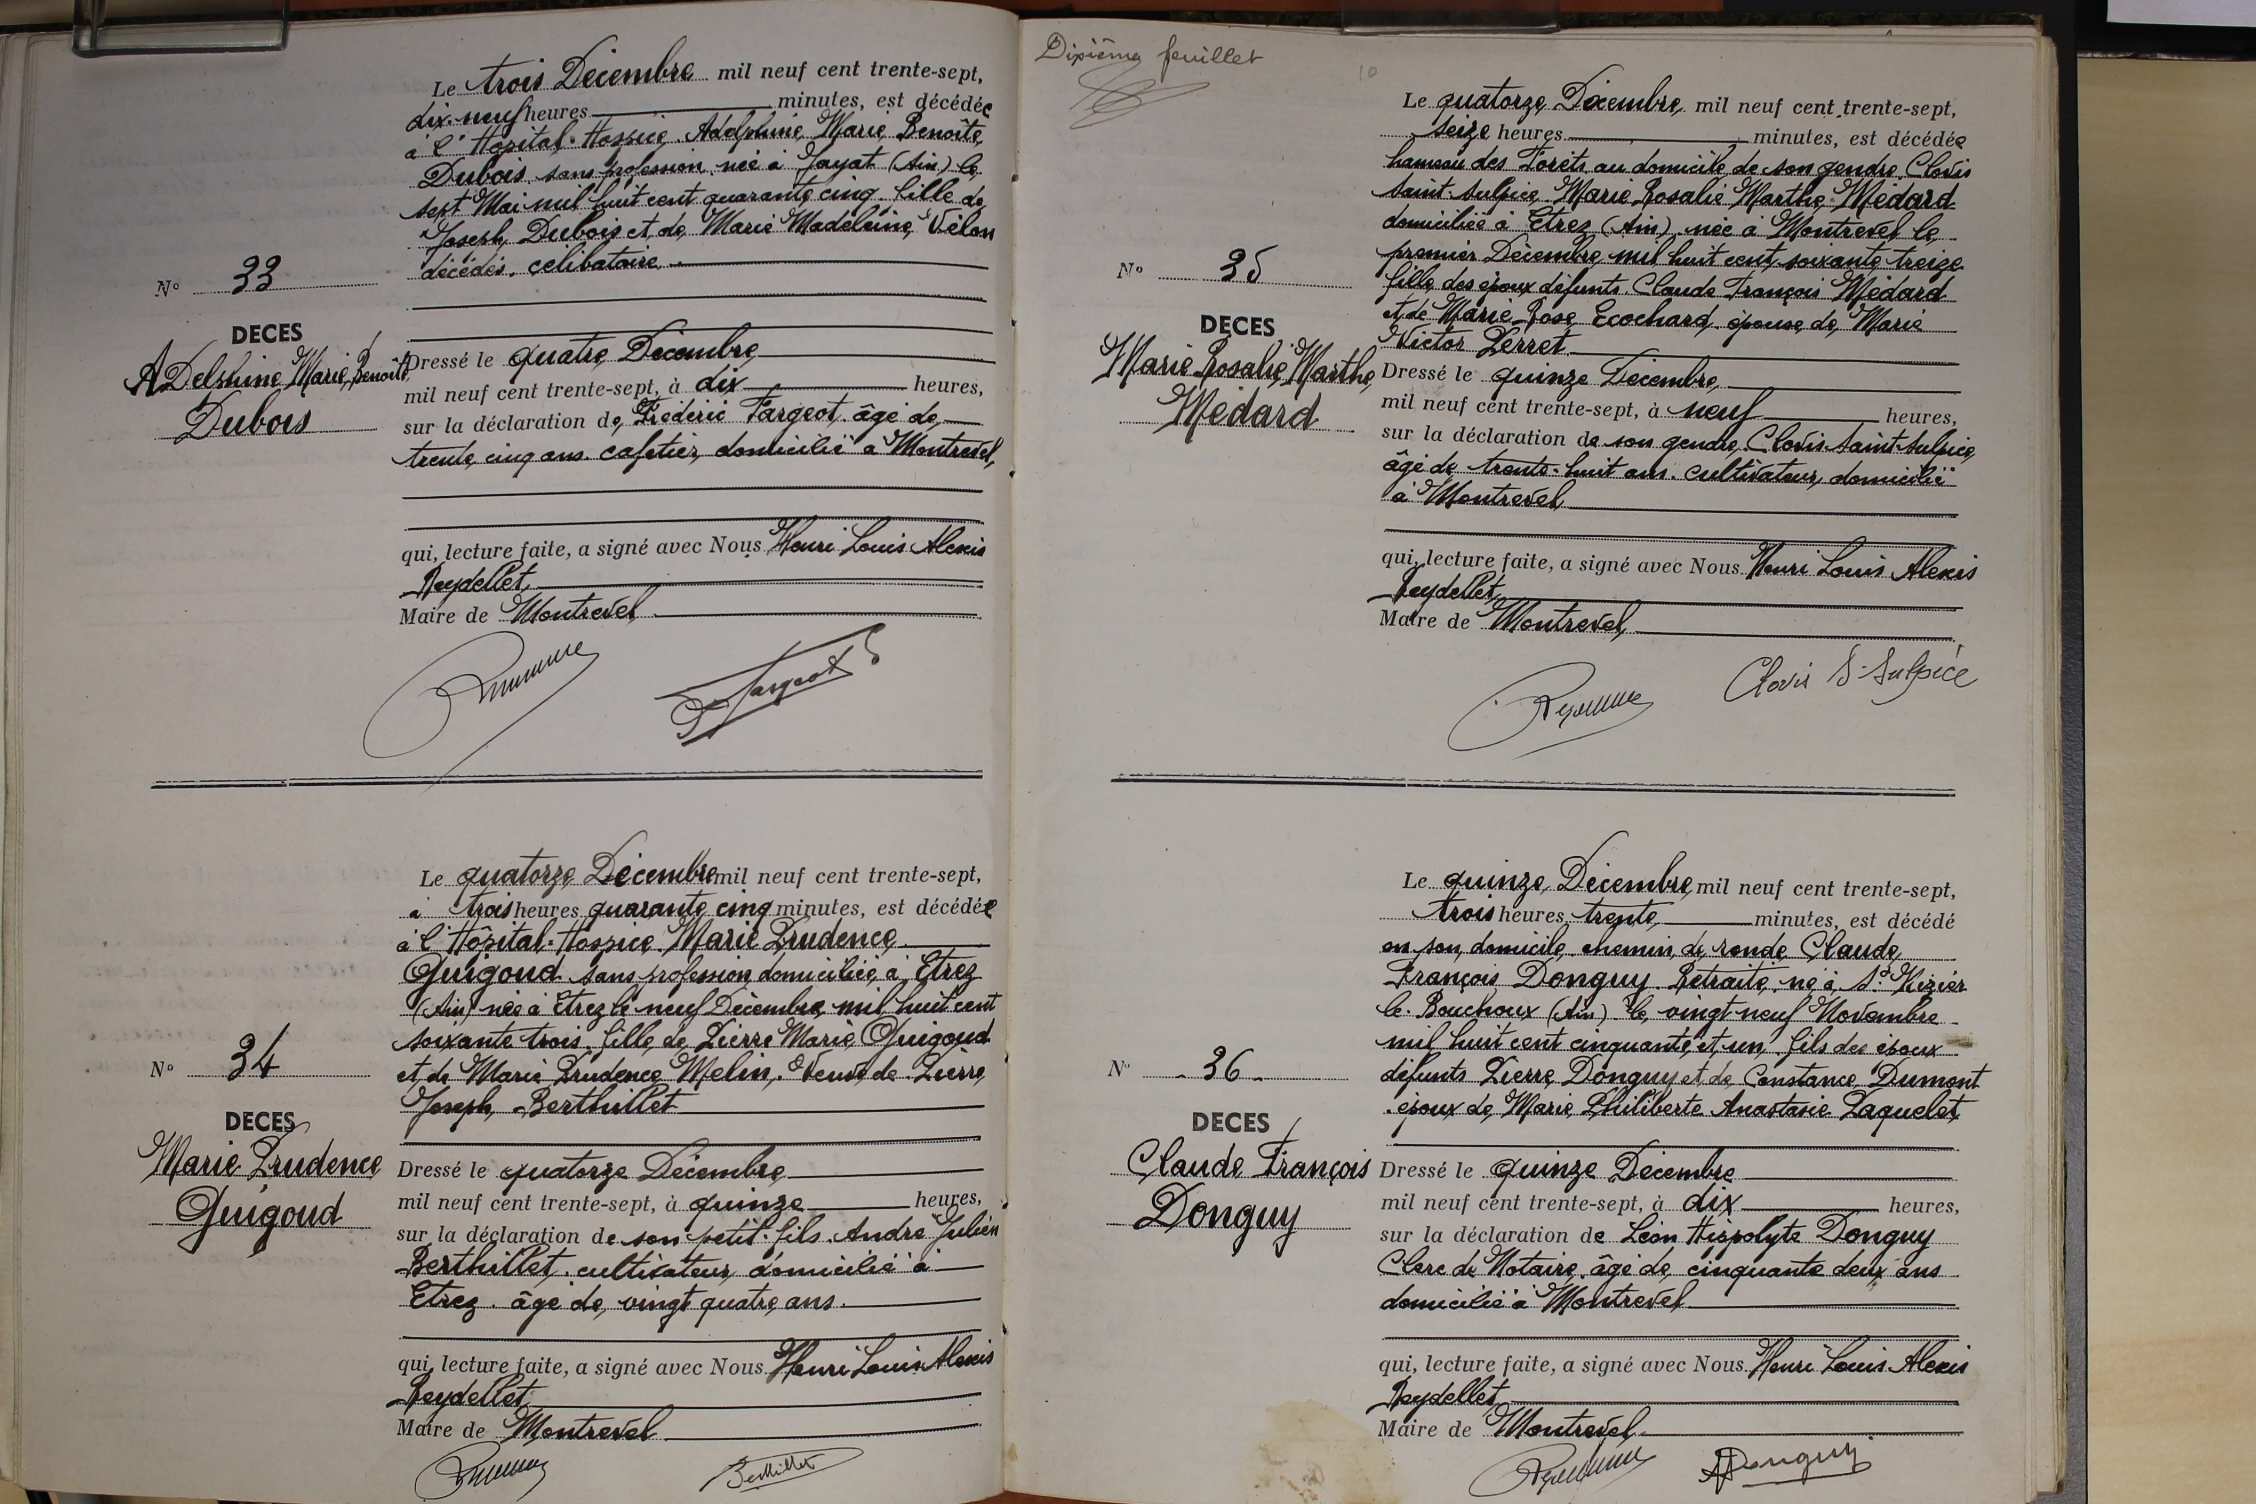 Le trois Décembre mil neuf cent trente-sept,
dix-neuf heures minutes, est décédée
à l'Hôpital-Hospice Adelphine Marie Benoîte
Dubois sans profession née à Jayat (Ain) le
sept Mai mil huit cent quarante cinq fille de
Joseph Dubois et de Marie Madeleine Velon
décédés. célibataire
N° 33
DECES
Adelphine Marie Benoîte
Dubois
Dressé le quatre Décembre
mil neuf cent trente-sept, à dix heures,
sur la déclaration de Frédéric Fargeot âgé de
trente cinq ans cafetier domicilié à Montrevel,
qui, lecture faite, a signé avec Nous Henri Louis Alexis
Reydellet
Maire de Montrevel
Fargeot
Le quatorze Décembre mil neuf cent trente-sept,
à trois heures quarante cinq minutes, est décédée
à l'Hôpital-Hospice Marie Prudence
Guigoud sans profession domiciliée à Etrez
(Ain) née à Etrez le neuf Décembre mil huit cent
soixante trois. fille de Pierre Marie Guigoud
et de Marie Prudence Melin. Veuve de Pierre
Joseph Berthillet
N° 34
DECES
Marie Prudence
Guigoud
Dressé le quatorze Décembre
mil neuf cent trente-sept, à quinze heures,
sur la déclaration de son petit-fils André Julien
Berthillet. cultivateur domicilié à
Etrez. âgé de vingt quatre ans.
qui, lecture faite, a signé avec Nous Henri Louis Alexis
Reydellet
Maire de Montrevel
Berthillet
Dixième feuillet
10
Le quatorze Décembre mil neuf cent trente-sept,
seize heures minutes, est décédée
hameau des Forêts au domicile de son gendre Clovis
Saint-Sulpice Marie Rosalie Marthe Médard
domiciliée à Etrez (Ain). née à Montrevel le
premier Décembre mil huit cent soixante treize
fille des époux défunts Claude François Médard
et de Marie Rose Ecochard. épouse de Marie
Victor Perret
N° 35
DECES
Marie Rosalie Marthe
Médard
Dressé le quinze Décembre
mil neuf cent trente-sept, à neuf heures,
sur la déclaration de son gendre Clovis Saint-Sulpice
âgé de trente-huit ans. cultivateur domicilié
à Montrevel
qui, lecture faite, a signé avec Nous Henri Louis Alexis
Reydellet
Maire de Montrevel
Clovis St-Sulpice
Le quinze Décembre mil neuf cent trente-sept,
trois heures trente minutes, est décédé
en son domicile chemin de ronde Claude
François Donguy Retraité né à St Nizier
le Bouchoux (Ain) le vingt-neuf Novembre
mil huit cent cinquante et un fils des époux
défunts Pierre Donguy et de Constance Dumont
époux de Marie Philiberte Anastasie Paquelet
N° 36
DECES
Claude François
Donguy
Dressé le quinze Décembre
mil neuf cent trente-sept, à dix heures,
sur la déclaration de Léon Hippolyte Donguy
Clerc de Notaire. âgé de cinquante deux ans
domicilié à Montrevel
qui, lecture faite, a signé avec Nous Henri Louis Alexis
Reydellet
Maire de Montrevel
Donguy